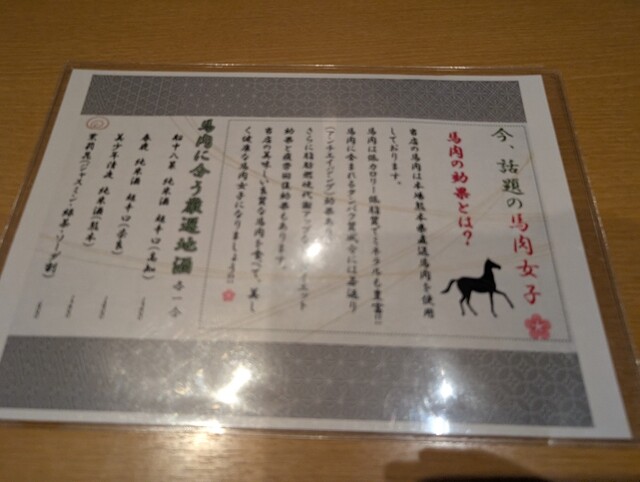 今、話題の馬肉女子
馬肉の効果とは？
当店の馬肉は本場熊本県産直送馬肉を使用
しております。
馬肉は低カロリー低脂質でミネラルも豊富!!
馬肉に含まれるタンパク質成分には若返り
(アンチエイジング)効果あり
さらに脂肪燃焼代謝アップなダイエット
効果と疲労回復効果もあります。
当店の美味しい良質な馬肉を食べて、美し
く健康な馬肉女子になりましょう!!
馬肉に合う厳選地酒 各一合
船中八策 純米酒 超辛口(高知)
春鹿 純米酒 超辛口(奈良)
美少年清夜 純米酒(熊本)
茉莉花(ジャスミン・緑茶・ソーダ割)